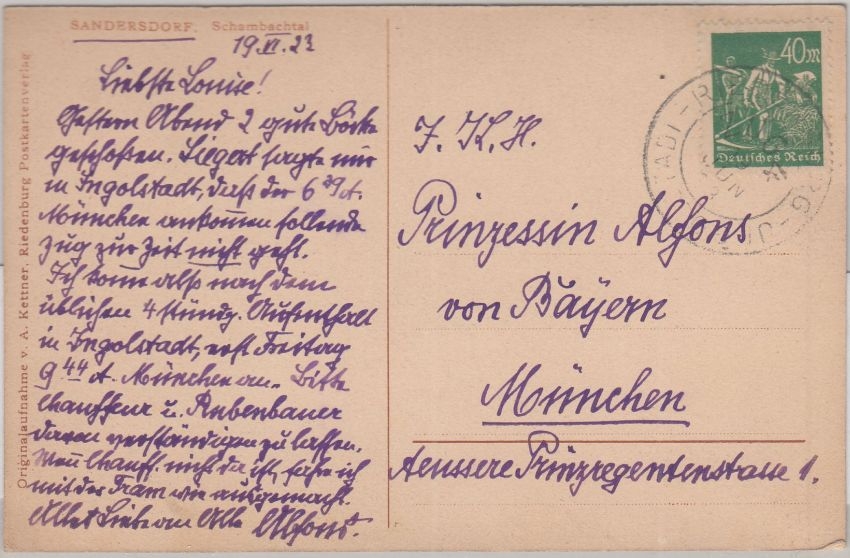 SANDERSDORF. Schambachtal
19.VI.23
Liebste Louise!
Gestern Abend 2 gute Böcke
geschoßen. Siegert sagte mir
in Ingolstadt, daß der 6 39 A.
München ankommen sollende
Zug zur Zeit nicht geht.
Ich komme also nach dem
üblichen 4 stündg. Aufenthalt
in Ingolstadt, erst Freitag
9 44 A. München an. Bitte
Chauffeur u. Rubenbauer
davon verständigen zu lassen.
Wenn Chauff. nicht da ist, fahre ich
mit der Tram wie ausgemacht.
Alles Liebe an Alle Alfons.
Originalaufnahme v. A. Kettner, Riedenburg Postkartenverlag
40M
Deutsches Reich
I. K. H.
Prinzessin Alfons
von Bayern
München
Aeussere Prinzregentenstrasse 1.